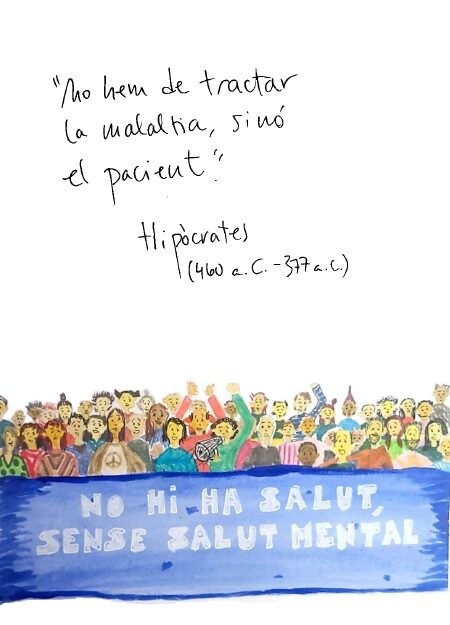 "No hem de tractar
la malaltia, sinó
el pacient".
Hipòcrates
(460 a.C. - 377 a.C.)
NO Hi HA SALUT,
SENSE SALUT MENTAL